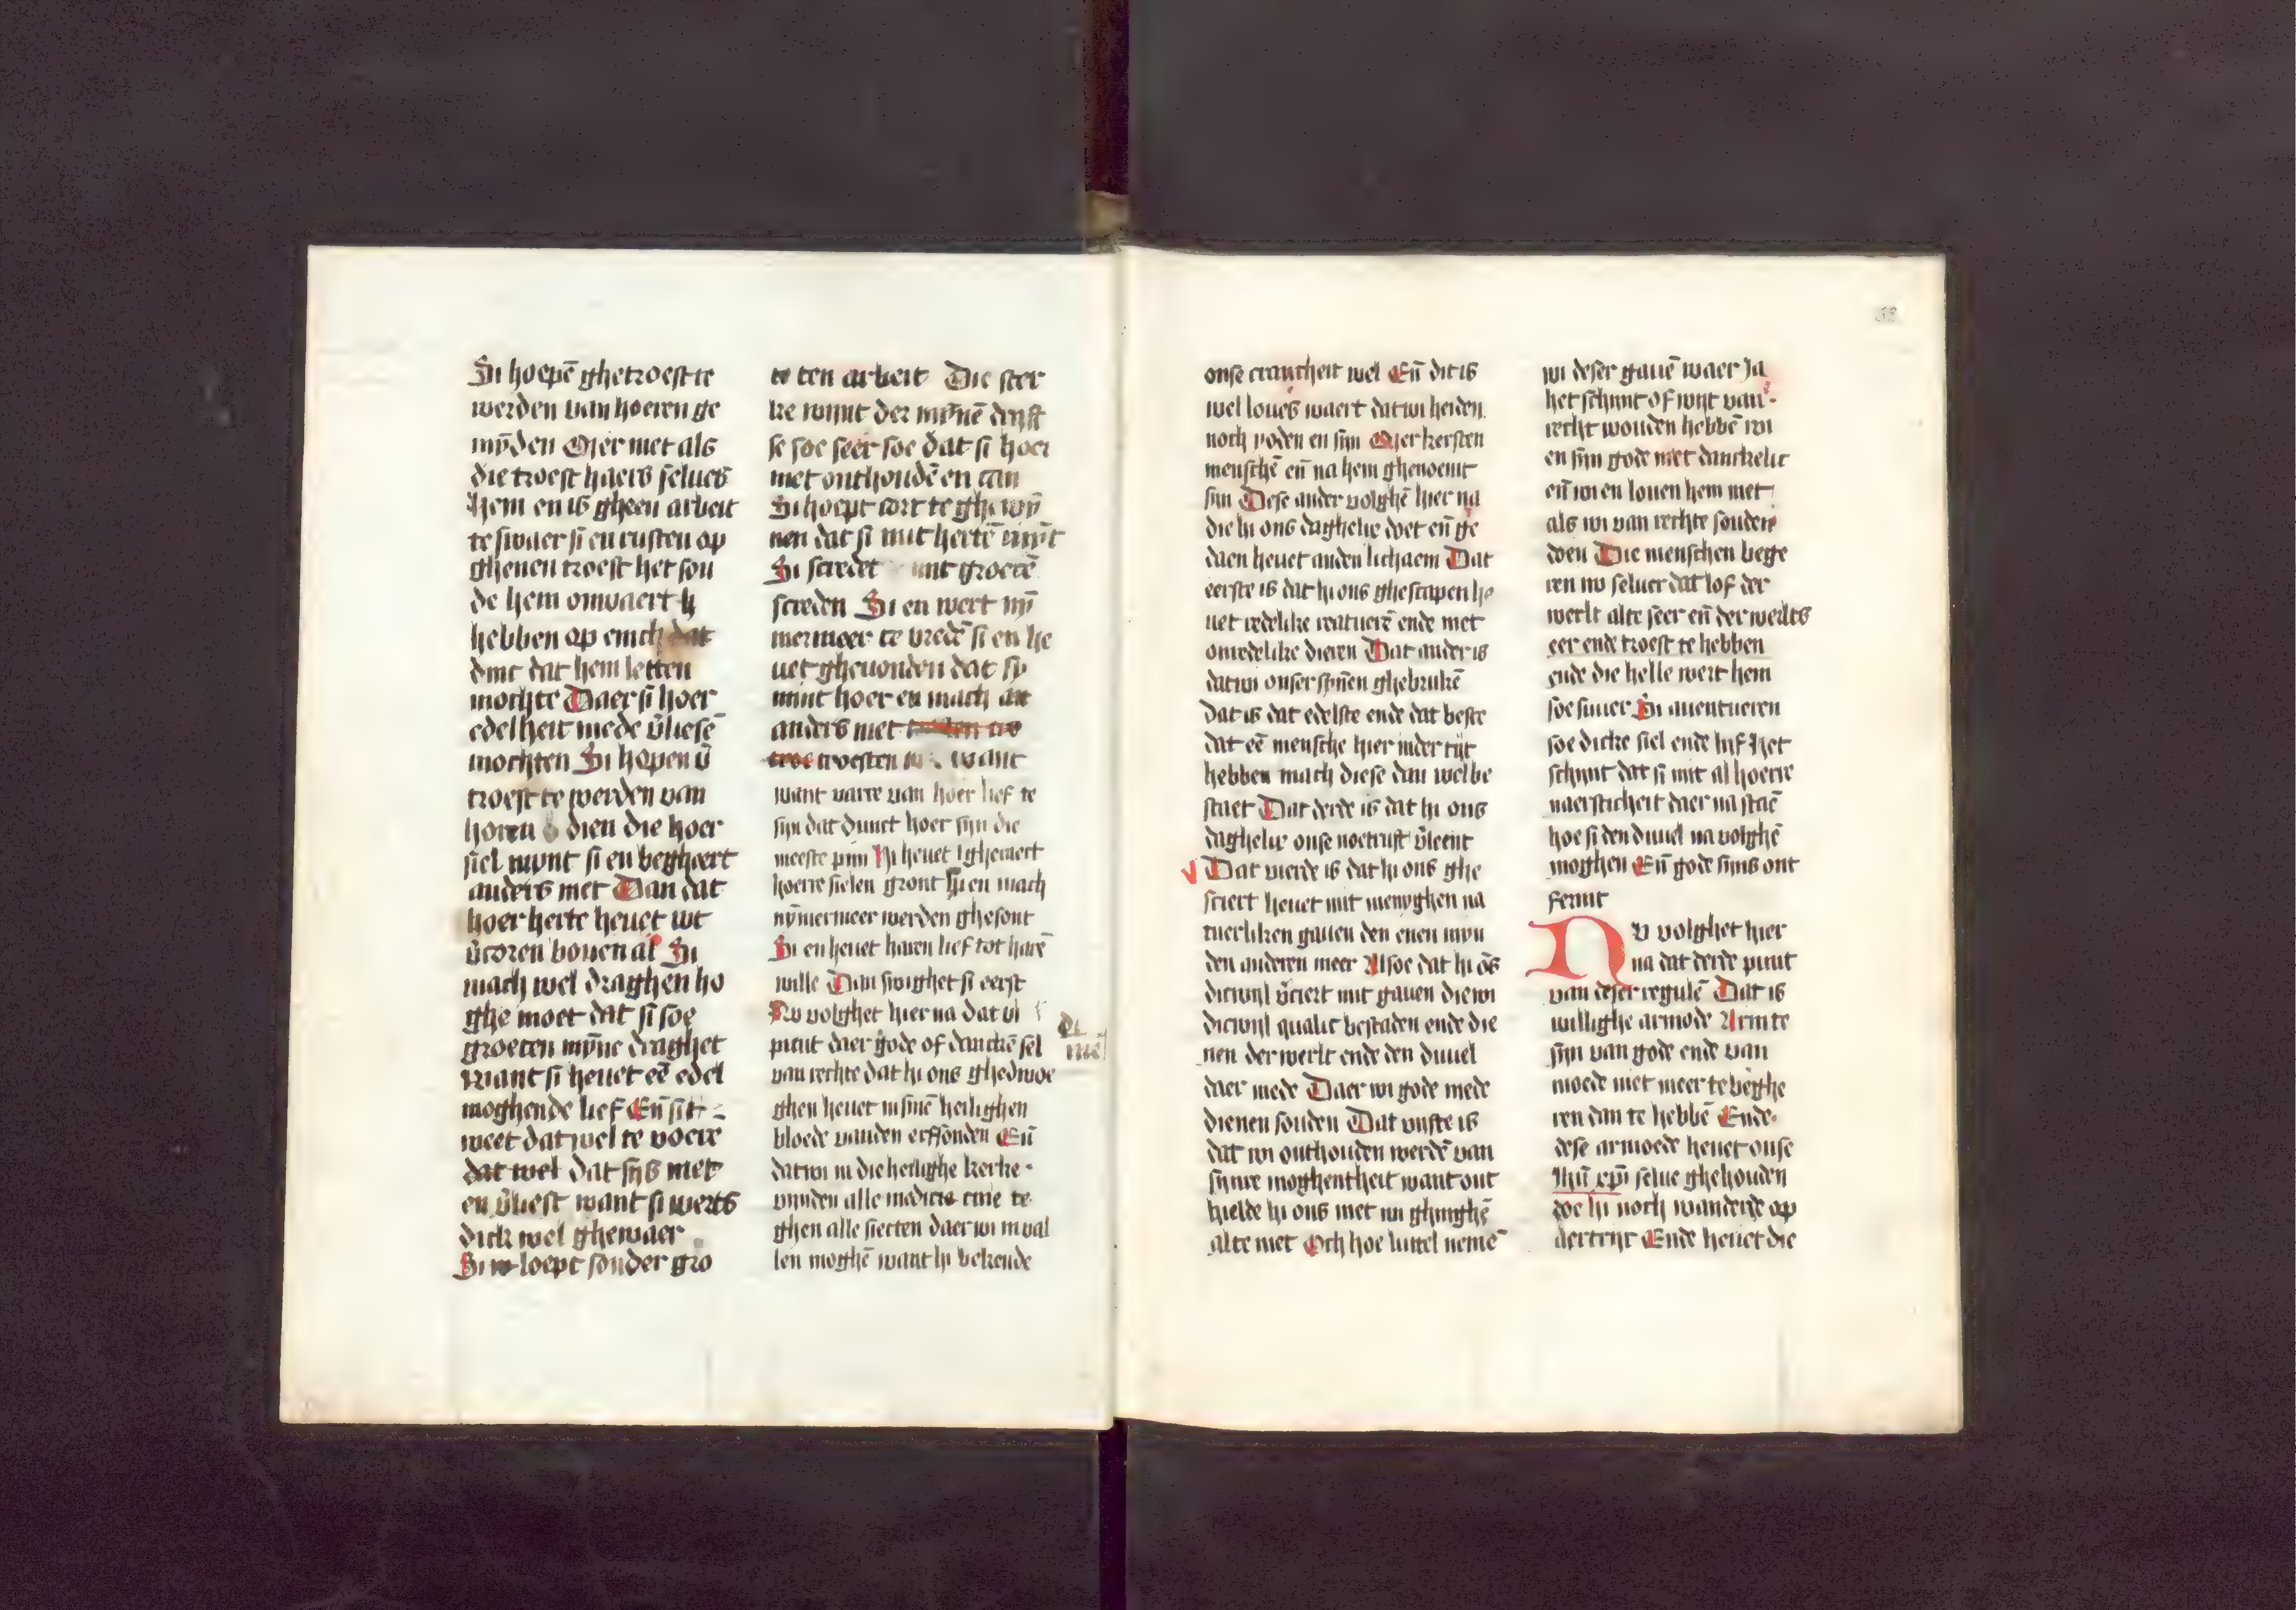 Si hoepē ghetroest te
werden van hoeren ge
mȳden Mer met als
die troest haers selues
hem en is gheen arbeit
te swaer si en rusten op
ghenen troest het sou
de hem onwaert
hebben op enich dat
dinc dat hem letten
mochte Daer si hoer
edelheit mede v̄liesē
mochten Si hopen v̄
troest te werden van
horen dien die hoer
siel mynt si en begheert
anders niet Dan dat
hoer herte heuet wt
v̄coren bouen al Si
mach wel draghen ho
ghe moet dat si soe
groeten mȳne draghet
want si heuet eē edel
moghende lief Eñ si
weet dat wel te voere
dat wel dat sijs niet
en v̄liest want si werts
dick wel ghewaer
Si loept sonder gro
te ten arbeit Die ster
ke mynt der mȳnē drijft
se soe seer soe dat si hoer
niet onthoudē en can
Si hoept cort te ghewȳ
nen dat si mit hertē mȳt
Si scredet mit groetē
screden Si en wert nȳ
mermeer te vredē si en he
uet gheuonden dat sy
mint hoer en mach
anders niet
troesten want
want varre van hoer lief te
sijn dat dunct hoer sijn die
meeste pijn Hi heuet ghewert
hoerre sielen gront Hi en mach
nȳmermeer werden ghesont
Si en heuet haren lief tot harē
wille Dan swighet si eerst
Nu volghet hier na dat vi
punt daer gode of danckē sel
van rechte dat hi ons ghedwoe
ghen heuet in sinē heilighen
bloede vanden erfsonden Eñ
dat wi in die heilighe kerke
vijnden alle medicine te
ghen alle siecten daer wi in val
len moghē want hi bekende
onse crancheit wel Eñ dit is
wel loues waert dat wi heiden
noch yoden en sijn Mer kersten
menschē eñ na hem ghenoemt
sijn Dese ander volghē hier na
die hi ons daghelix doet eñ ge
daen heuet anden lichaem Dat
eerste is dat hi ons ghescapen he
uet redelike creatuerē ende niet
onredelike dieren Dat ander is
dat wi onser sȳnen ghebrukē
dat is dat edelste ende dat beste
dat eē mensche hier inder tijt
hebben mach diese dan wel be
staet Dat derde is dat hi ons
daghelix onse noetruft v̄leent
Dat vierde is dat hi ons ghe
sciert heuet mit menyghen na
tuerliken gauen den enen myn
den anderen meer Alsoe dat hi ōs
dicwijl v̄ciert mit gauen die wi
dicwijl qualic bestaden ende die
nen der werlt ende den duuel
daer mede Daer wi gode mede
dienen souden Dat vijfte is
dat wi onthouden werdē van
sijnre moghentheit want ont
hielde hi ons niet wi ghinghē
alte niet Och hoe luttel nemē
wi deser gauē waer Ja
het schijnt of wijt van
recht wouden hebbē wi
en sijn gode niet danckelic
eñ wi en louen hem niet
als wi van rechte souden
doen Die menschen bege
ren nv seluer dat lof der
werlt alte seer eñ der werlts
eer ende troest te hebben
ende die helle wert hem
soe suuer Si auentueren
soe dicke siel ende lijf Het
schijnt dat si mit al hoerre
naersticheit daer na staē
hoe si den duuel na volghē
moghen Eñ gode sijns ont
fermt
Nv volghet hier
na dat derde punt
van deser regulē Dat is
willighe armode Arm te
sijn van gode ende van
moede niet meer te beghe
ren dan te hebbē Ende
dese armoede heuet onse
ihū xp̄i selue ghehouden
doe hi noch wanderde op
aertrijc Ende heuet die